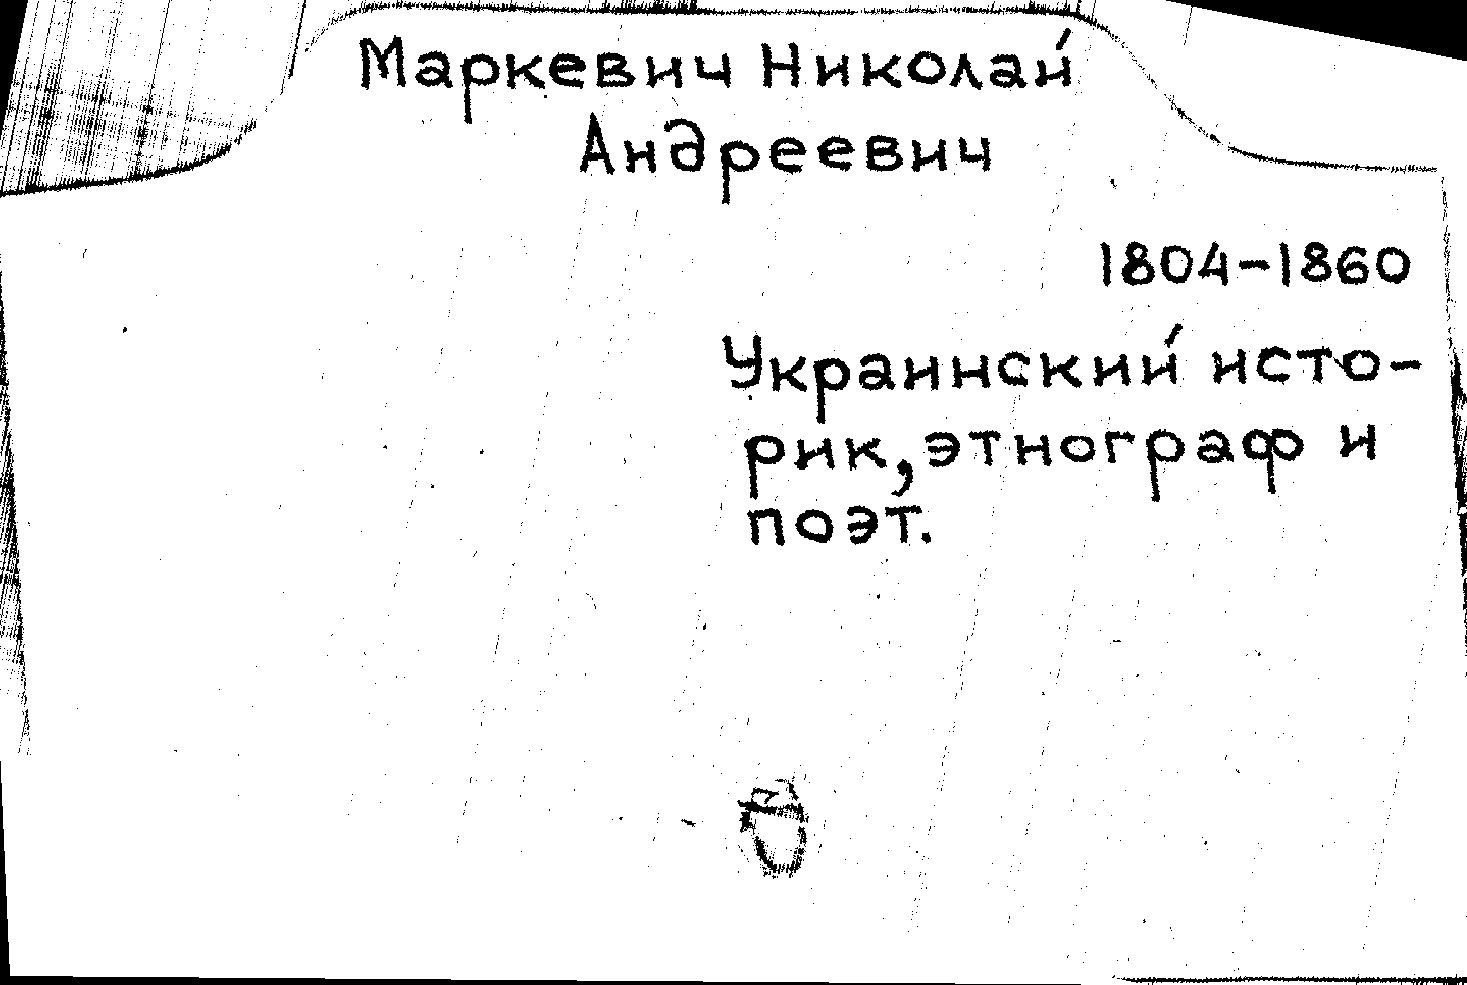 Маркевич Николай
Андреевич
1804-1860
Украинский исто-
рик, этнограф и
поэт.